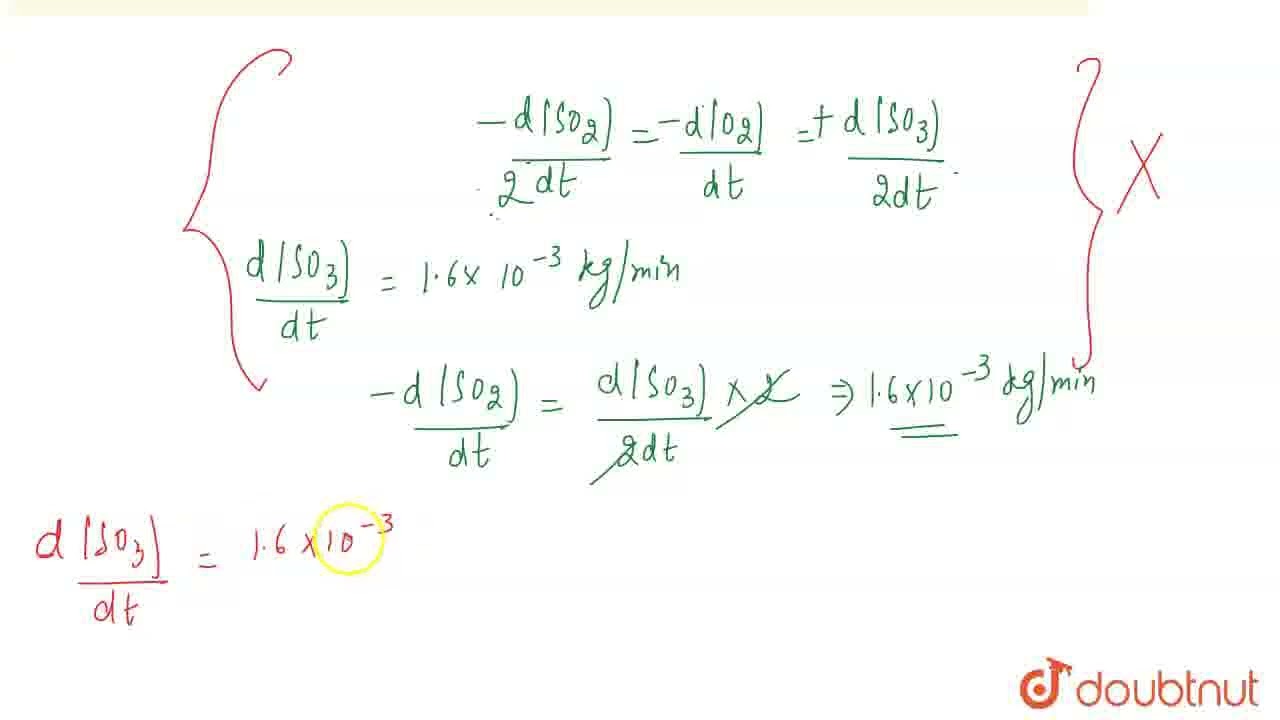 -d[SO2]/2dt = -d[O2]/dt = +d[SO3]/2dt X
d[SO3]/dt = 1.6 × 10^-3 kg/min
-d[SO2]/dt = d[SO3]/2dt × 2 ⇒ 1.6×10^-3 kg/min
d[SO3]/dt = 1.6 × 10^-3
doubtnut